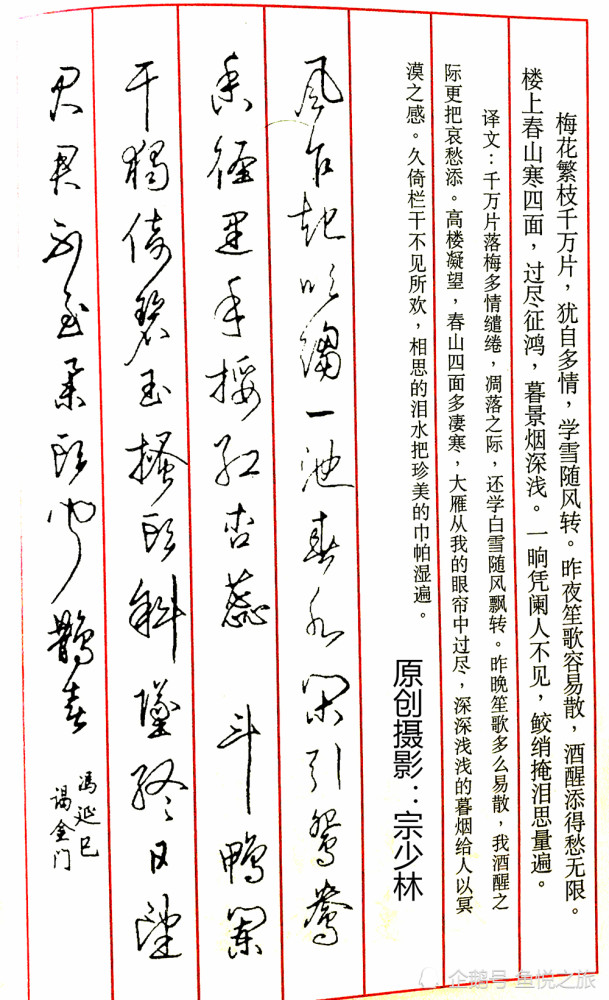 梅花繁枝千万片，犹自多情，学雪随风转。昨夜笙歌容易散，酒醒添得愁无限。
楼上春山寒四面，过尽征鸿，暮景烟深浅。一晌凭阑人不见，鲛绡掩泪思量遍。
译文：千万片落梅多情缱绻，凋落之际，还学白雪随风飘转。昨晚笙歌多么易散，我酒醒之
际更把哀愁添。高楼凝望，春山四面多凄寒，大雁从我的眼帘中过尽，深深浅浅的暮烟给人以冥
漠之感。久倚栏干不见所欢，相思的泪水把珍美的巾帕湿遍。
原创摄影：宗少林
風乍起吹縐一池春水閑引鴛鴦
香徑里手挼紅杏蕊 斗鴨闌
干獨倚碧玉搔頭斜墜終日望
君君不至舉頭聞鵲喜
冯延巳
谒金门
企鹅号 鱼悦之旅